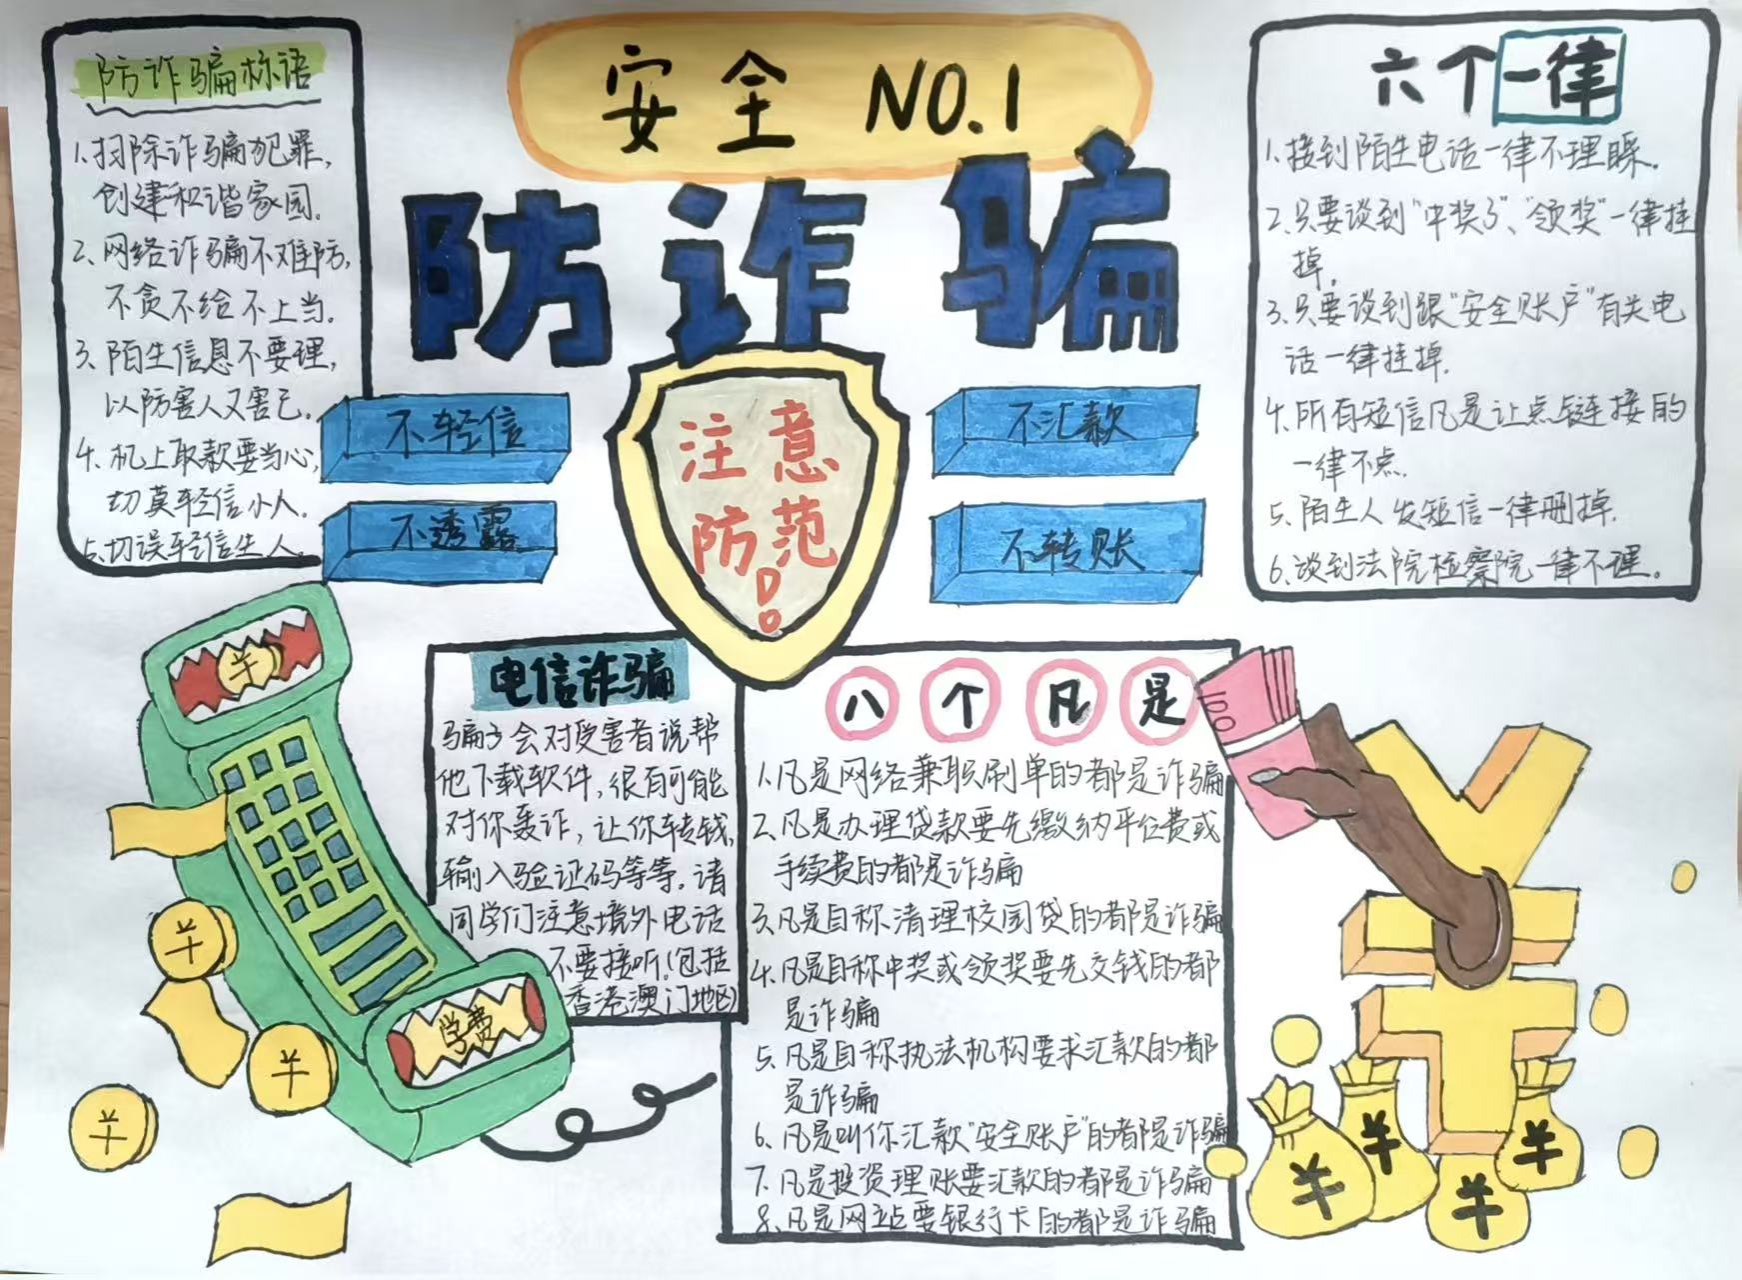 安全 NO.1
防诈骗
防诈骗标语
1、扫除诈骗犯罪,
创建和谐家园.
2、网络诈骗不难防,
不贪不给不上当.
3、陌生信息不要理,
以防害人又害己.
4、机上取款要当心,
切莫轻信小人.
5、切误轻信生人.
不轻信
不透露
注意
防范!
不汇款
不转账
六个一律
1、接到陌生电话一律不理睬.
2、只要谈到"中奖了"、"领奖"一律挂
掉.
3、只要谈到跟"安全账户"有关电
话一律挂掉.
4、所有短信凡是让点链接的
一律不点.
5、陌生人发短信一律删掉.
6、谈到法院检察院一律不理。
电信诈骗
骗子会对受害者说帮
他下载软件,很有可能
对你轰诈,让你转钱,
输入验证码等等。请
同学们注意境外电话
不要接听!(包括
香港澳门地区)
八个凡是
1、凡是网络兼职刷单的都是诈骗
2、凡是办理贷款要先缴纳平位费或
手续费的都是诈骗
3、凡是自称清理校园贷的都是诈骗
4、凡是自称中奖或领奖要先交钱的都
是诈骗
5、凡是自称执法机构要求汇款的都
是诈骗
6、凡是叫你汇款"安全账户"的都是诈骗
7、凡是投资理账要汇款的都是诈骗
8、凡是网站要银行卡的都是诈骗
学费
100